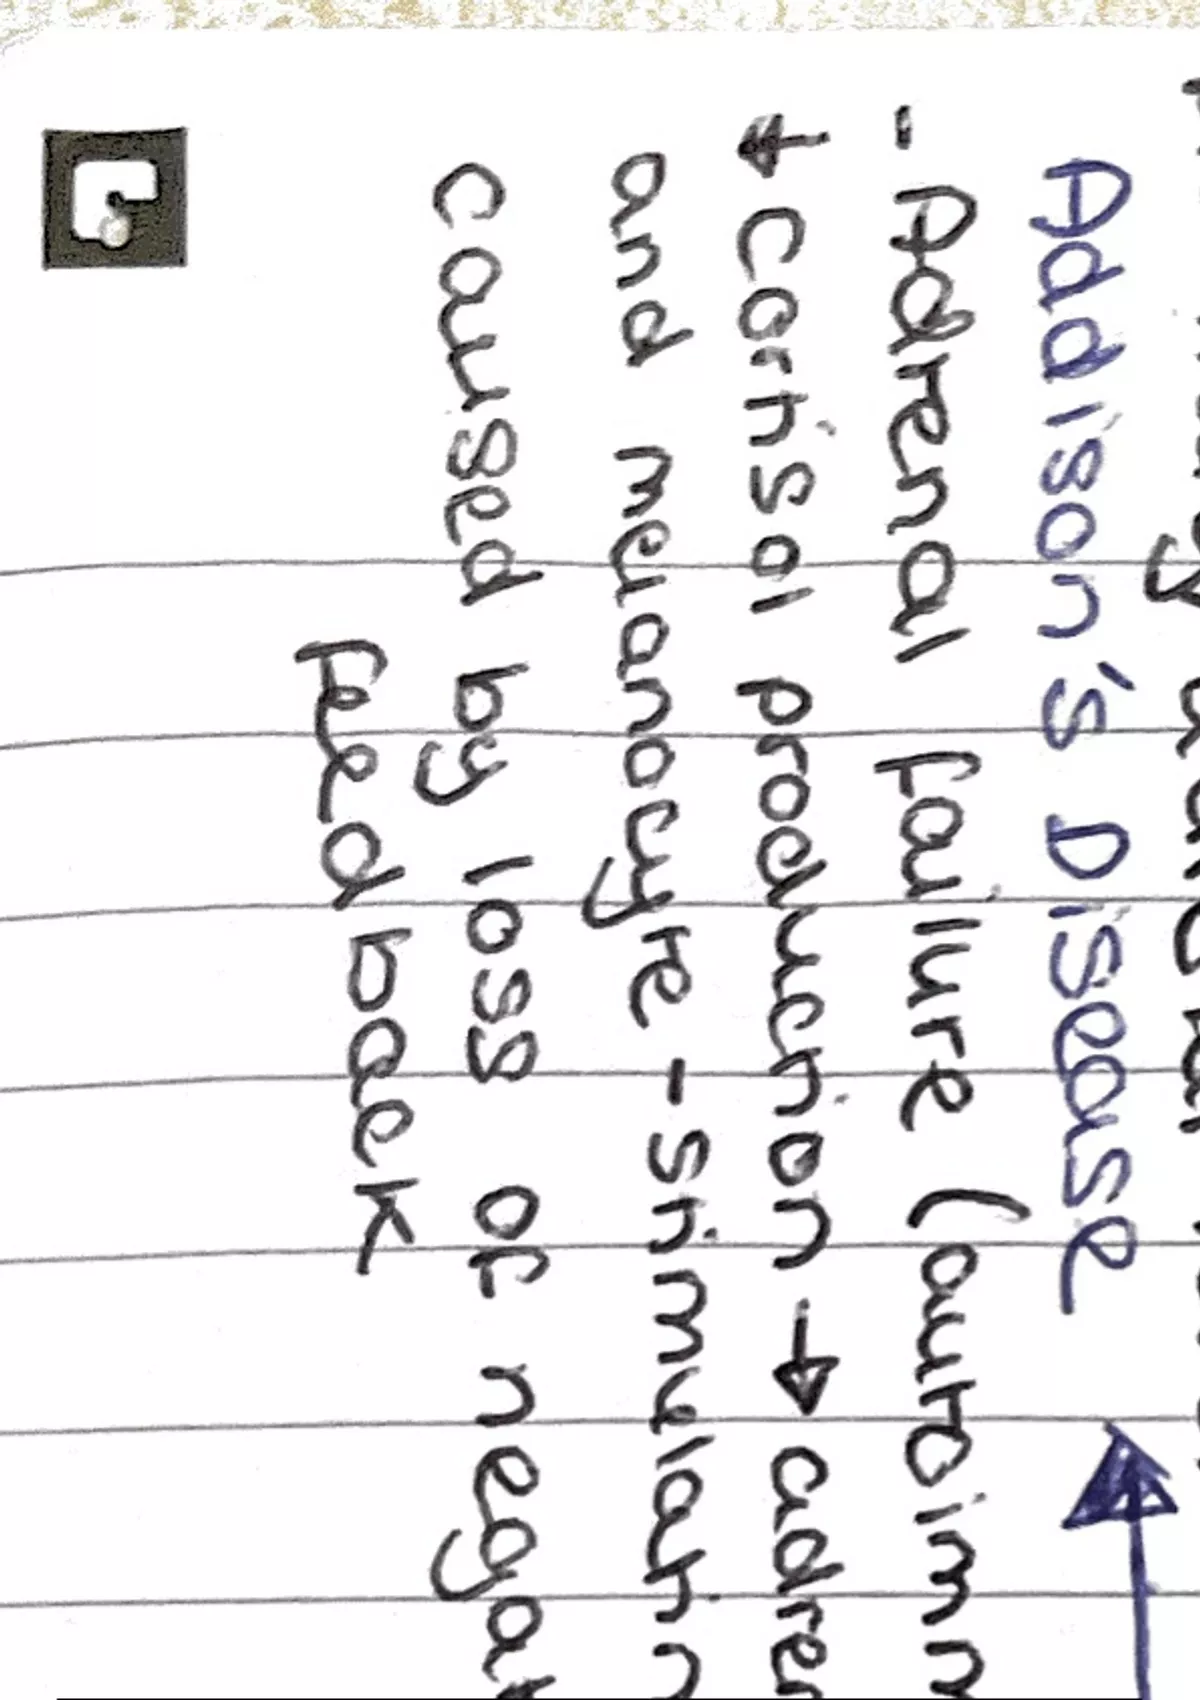 Addison's Disease
- Adrenal failure (autoimm
↓ cortisol production → adren
and melanocyte-stimulatin
caused by loss of negat
feedback